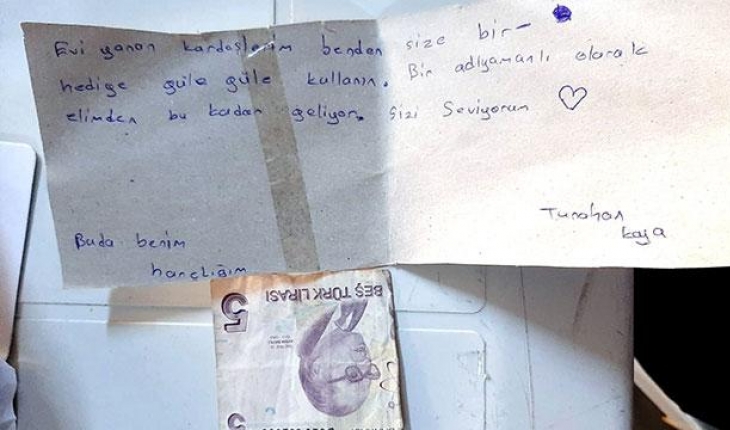 Evi yanan kardeşlerim benden size bir
hediye güle güle kullanın. Bir adıyamanlı olarak
elimden bu kadar geliyor. Sizi Seviyorum ♡
Tunahan
kaya
Buda benim
harçlığım
BEŞ TÜRK LİRASI
5
5